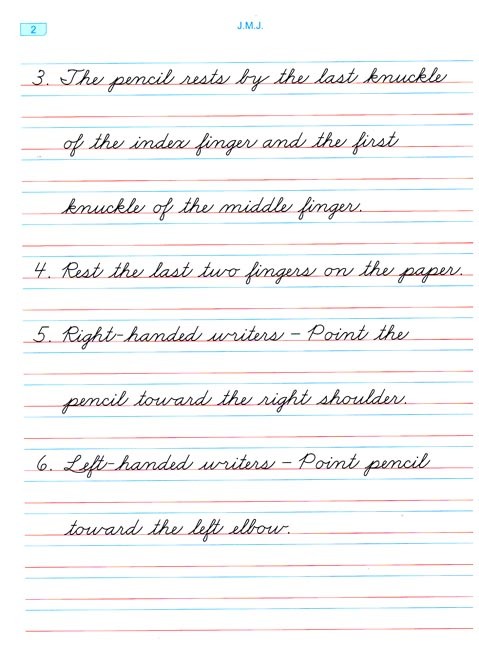 2
J.M.J.
3. The pencil rests by the last knuckle
of the index finger and the first
knuckle of the middle finger.
4. Rest the last two fingers on the paper.
5. Right-handed writers – Point the
pencil toward the right shoulder.
6. Left-handed writers – Point pencil
toward the left elbow.